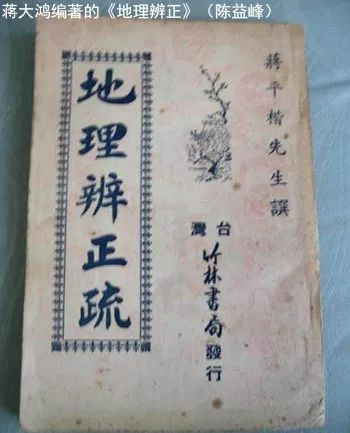 蒋大鸿编著的《地理辨正》（陈益峰）
蔣平楷先生譔
地理辨正疏
台灣
竹林書局發行